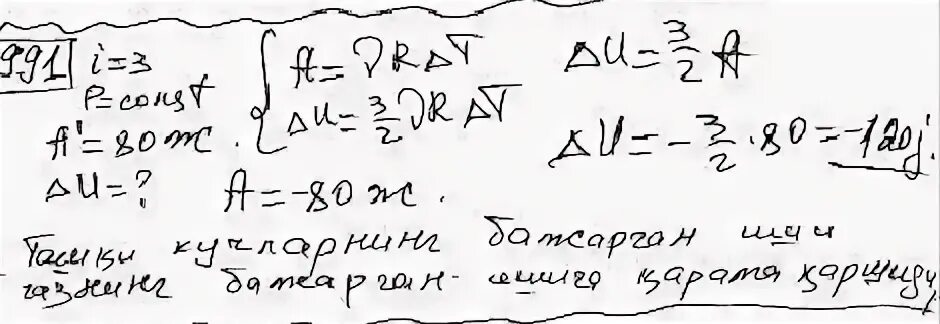 991 i=3
P=const
A'=80 ж.
ΔU=?
{ A=νRΔT
ΔU=3/2 νRΔT
A=-80 ж.
ΔU=3/2 A
ΔU=-3/2·80=-120j.
Ташқи кучларнинг бажарган иши
газнинг бажарган ишига қарама қаршидир